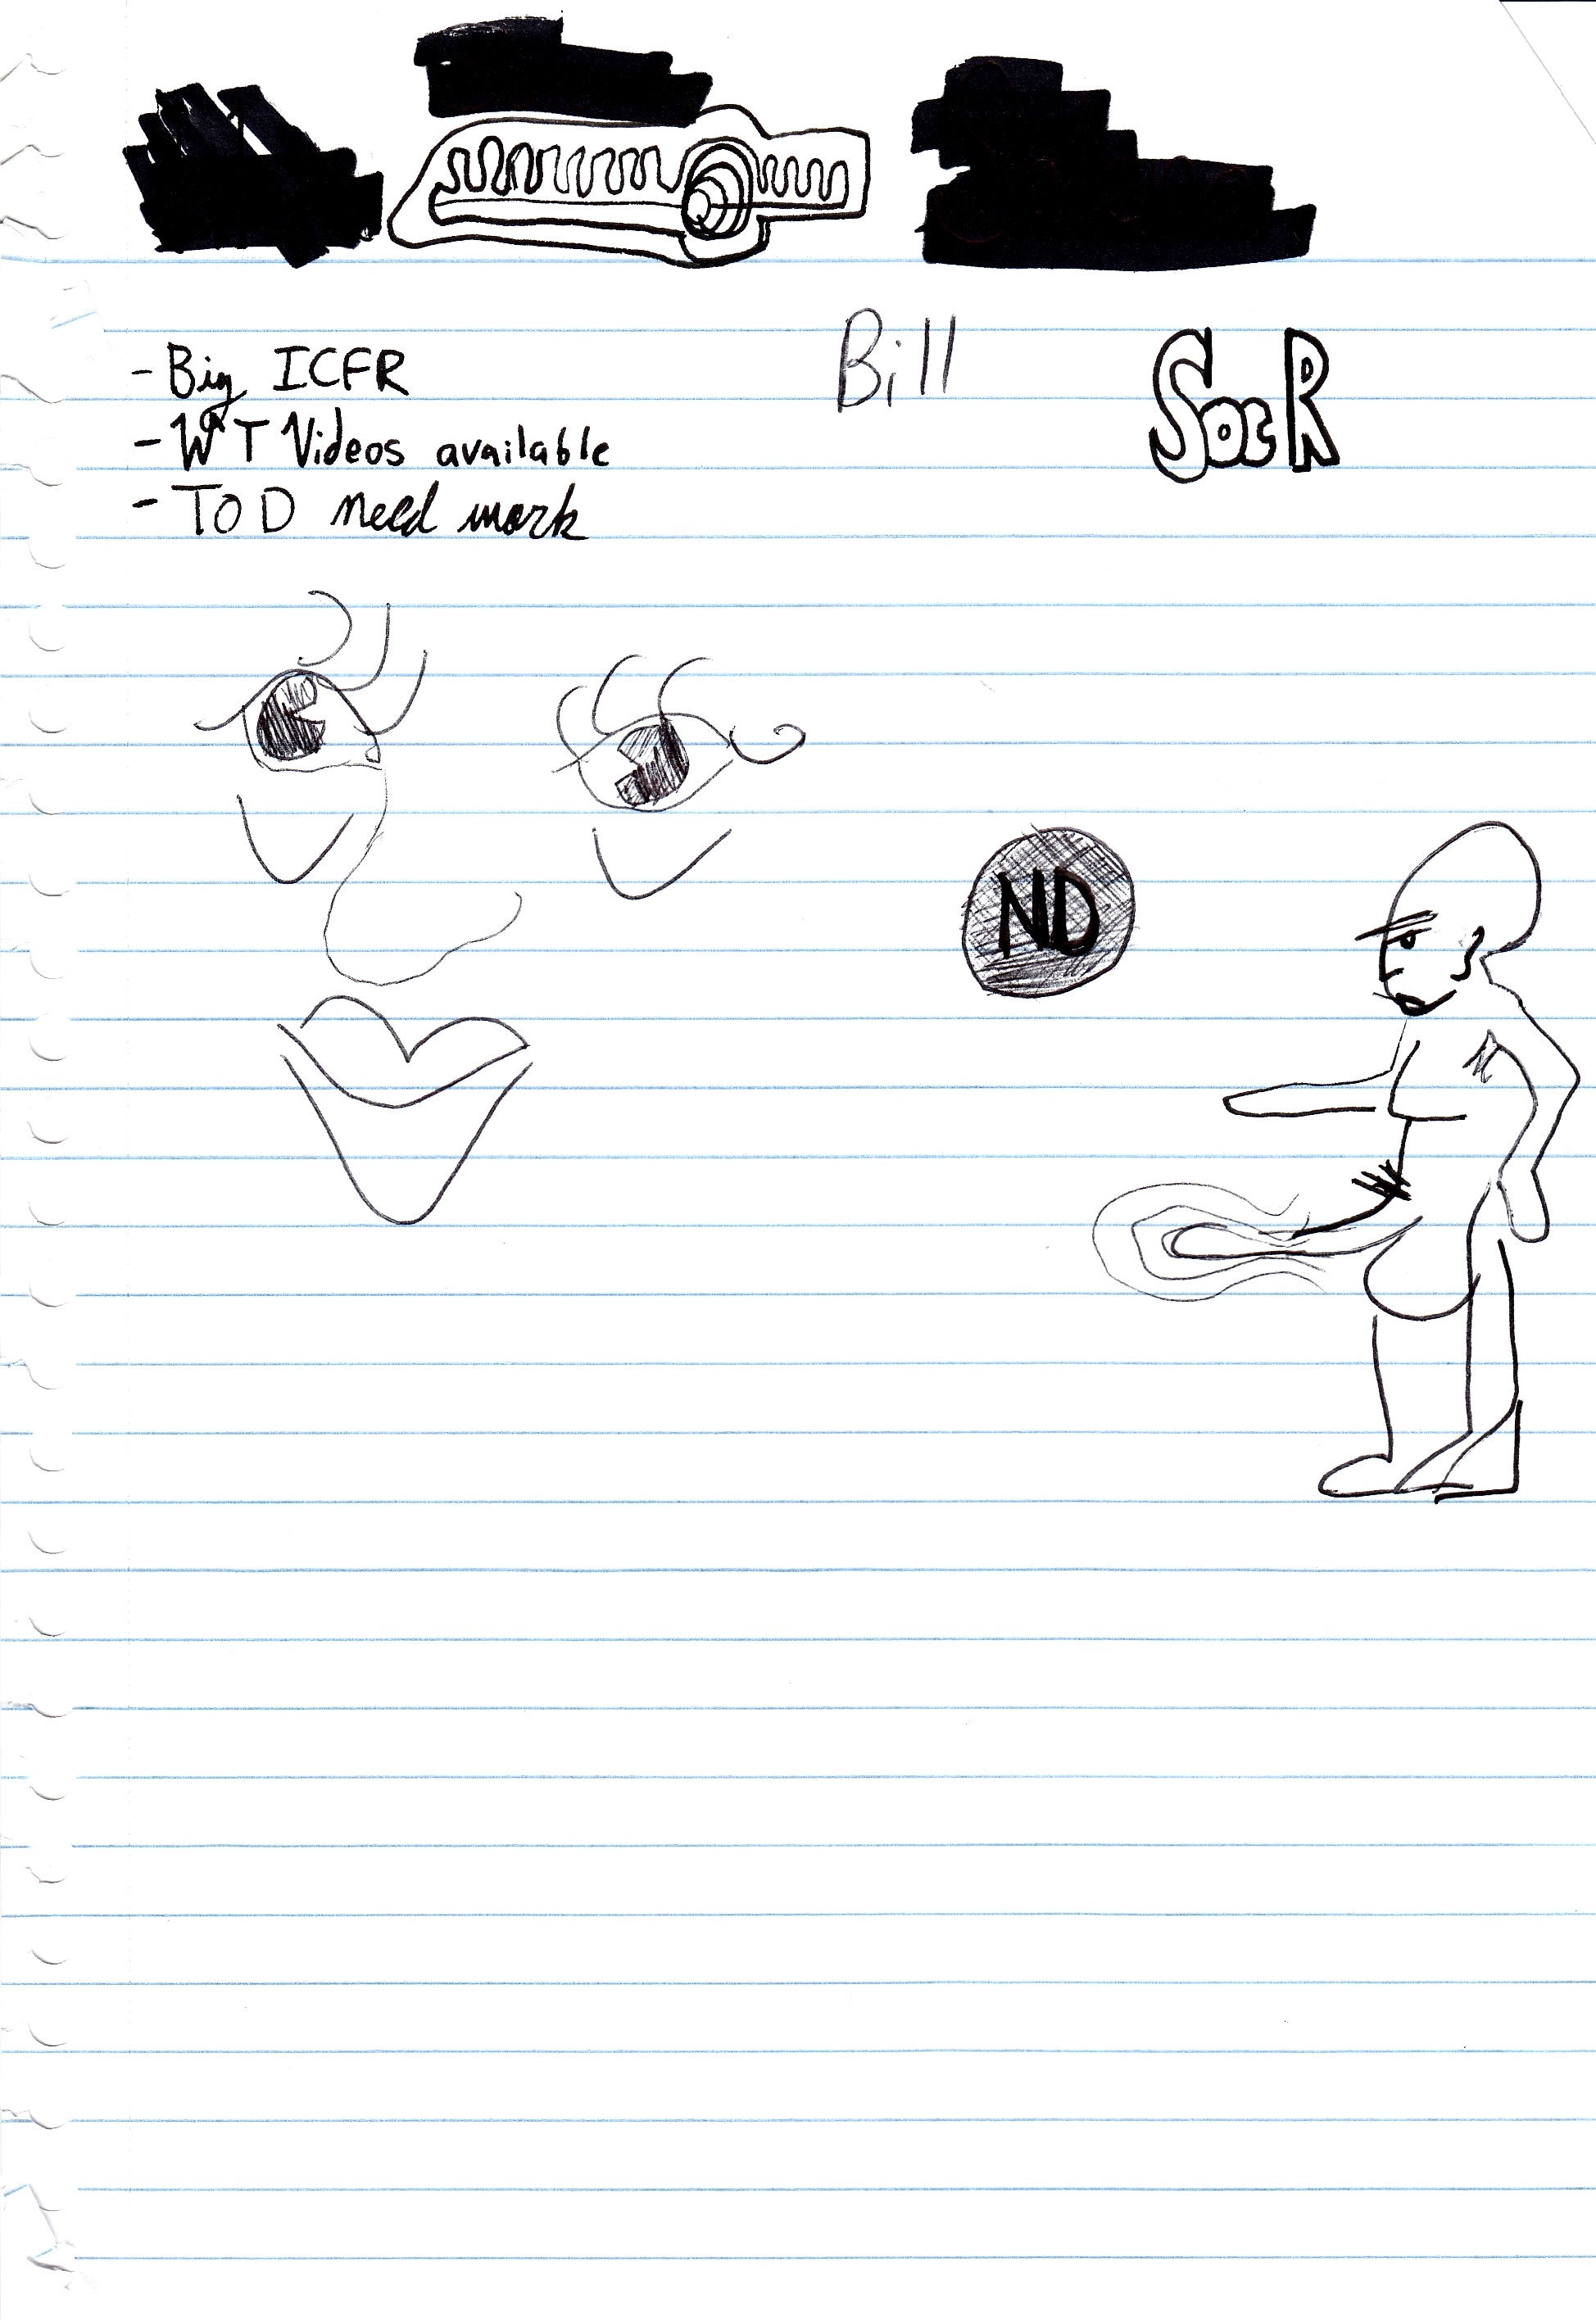 - Big ICFR
Bill
SocR
- WT Videos available
- TOD need work
ND